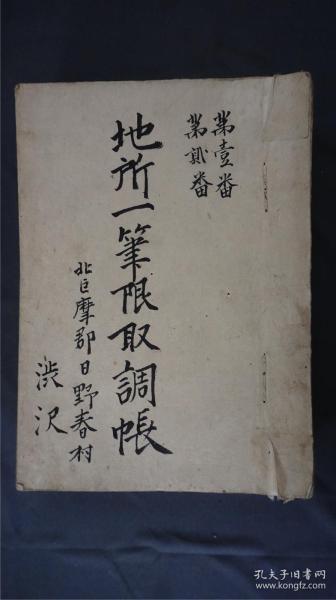 第壹番
第貳番
地所一筆限取調帳
北巨摩郡日野春村
渋沢
孔夫子旧书网
www.kongfz.com